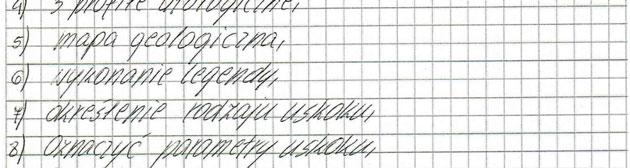 4) 3 profile litologiczne,
5) mapa geologiczna,
6) wykonanie legendy,
7) określenie rodzaju uskoku,
8) Oznaczyć parametry uskoku,